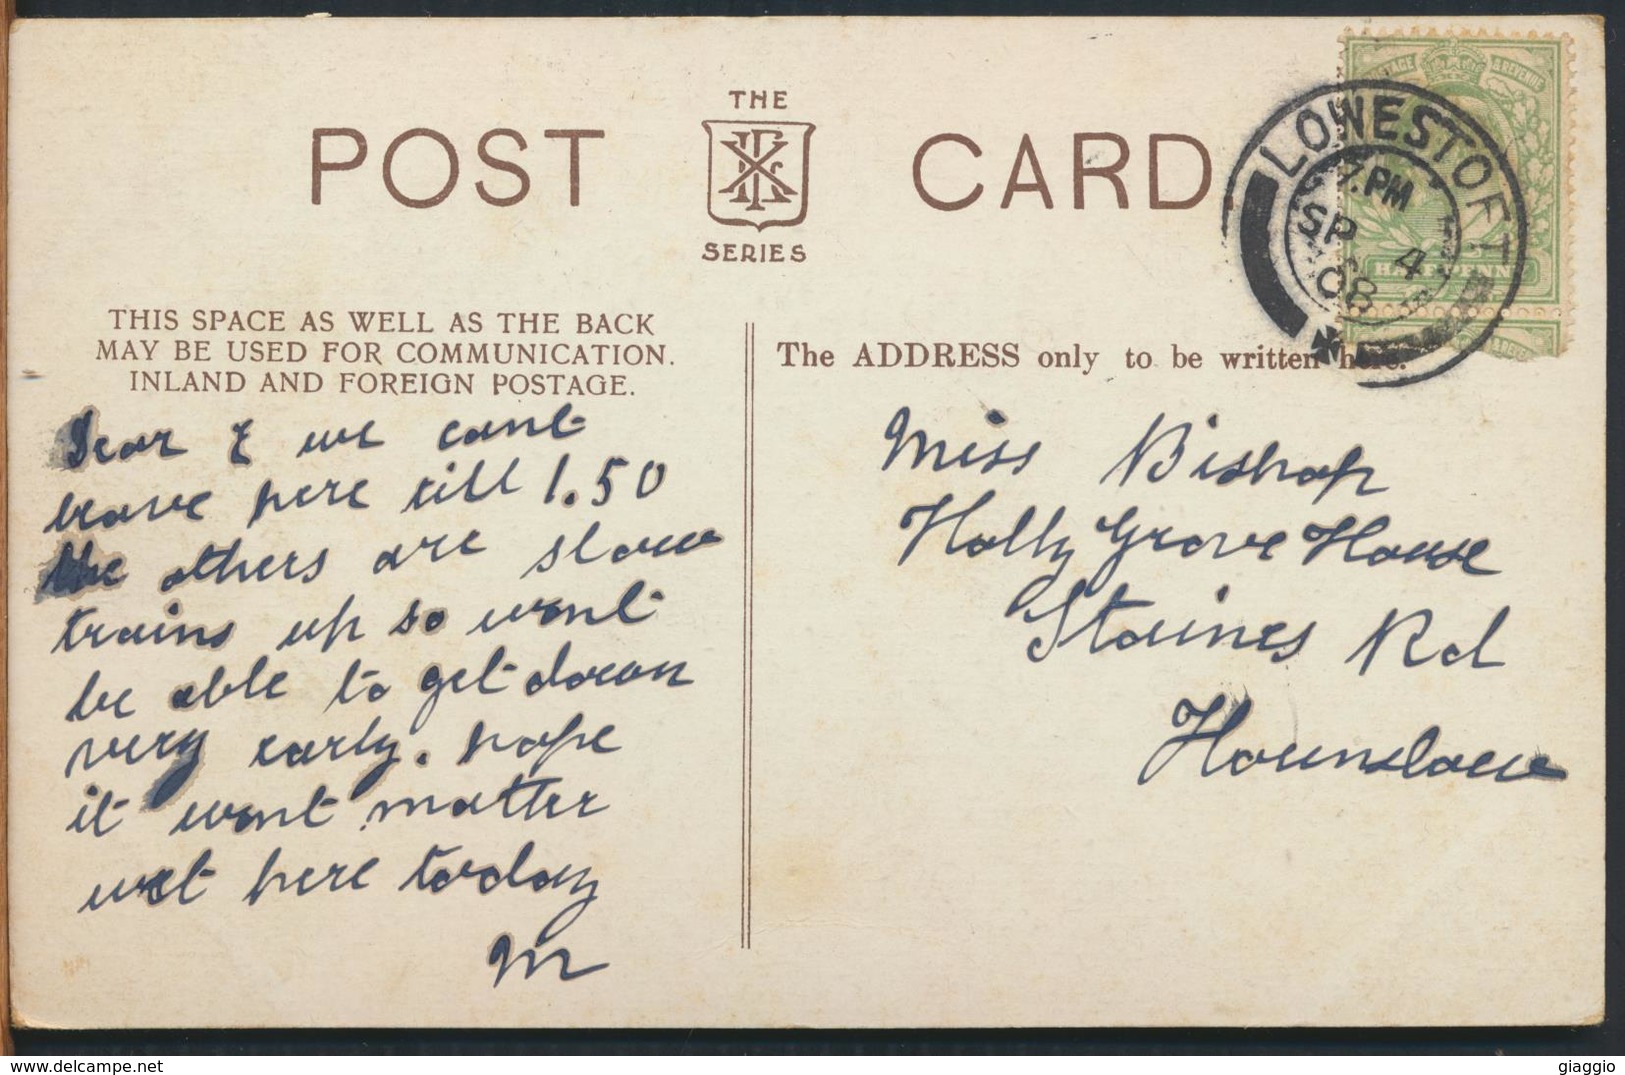 POST CARD
THE
SERIES
LOWESTOFT
7. PM
SP 4
08
POSTAGE & REVENUE
HALFPENNY
THIS SPACE AS WELL AS THE BACK
MAY BE USED FOR COMMUNICATION.
INLAND AND FOREIGN POSTAGE.
The ADDRESS only to be written here.
Dear E we cant
leave here till 1.50
the others are slow
trains up so wont
be able to get down
very early. hope
it wont matter
wet here today
M
Miss Bishop
Holly Grove House
Staines Rd
Hounslow
giaggio